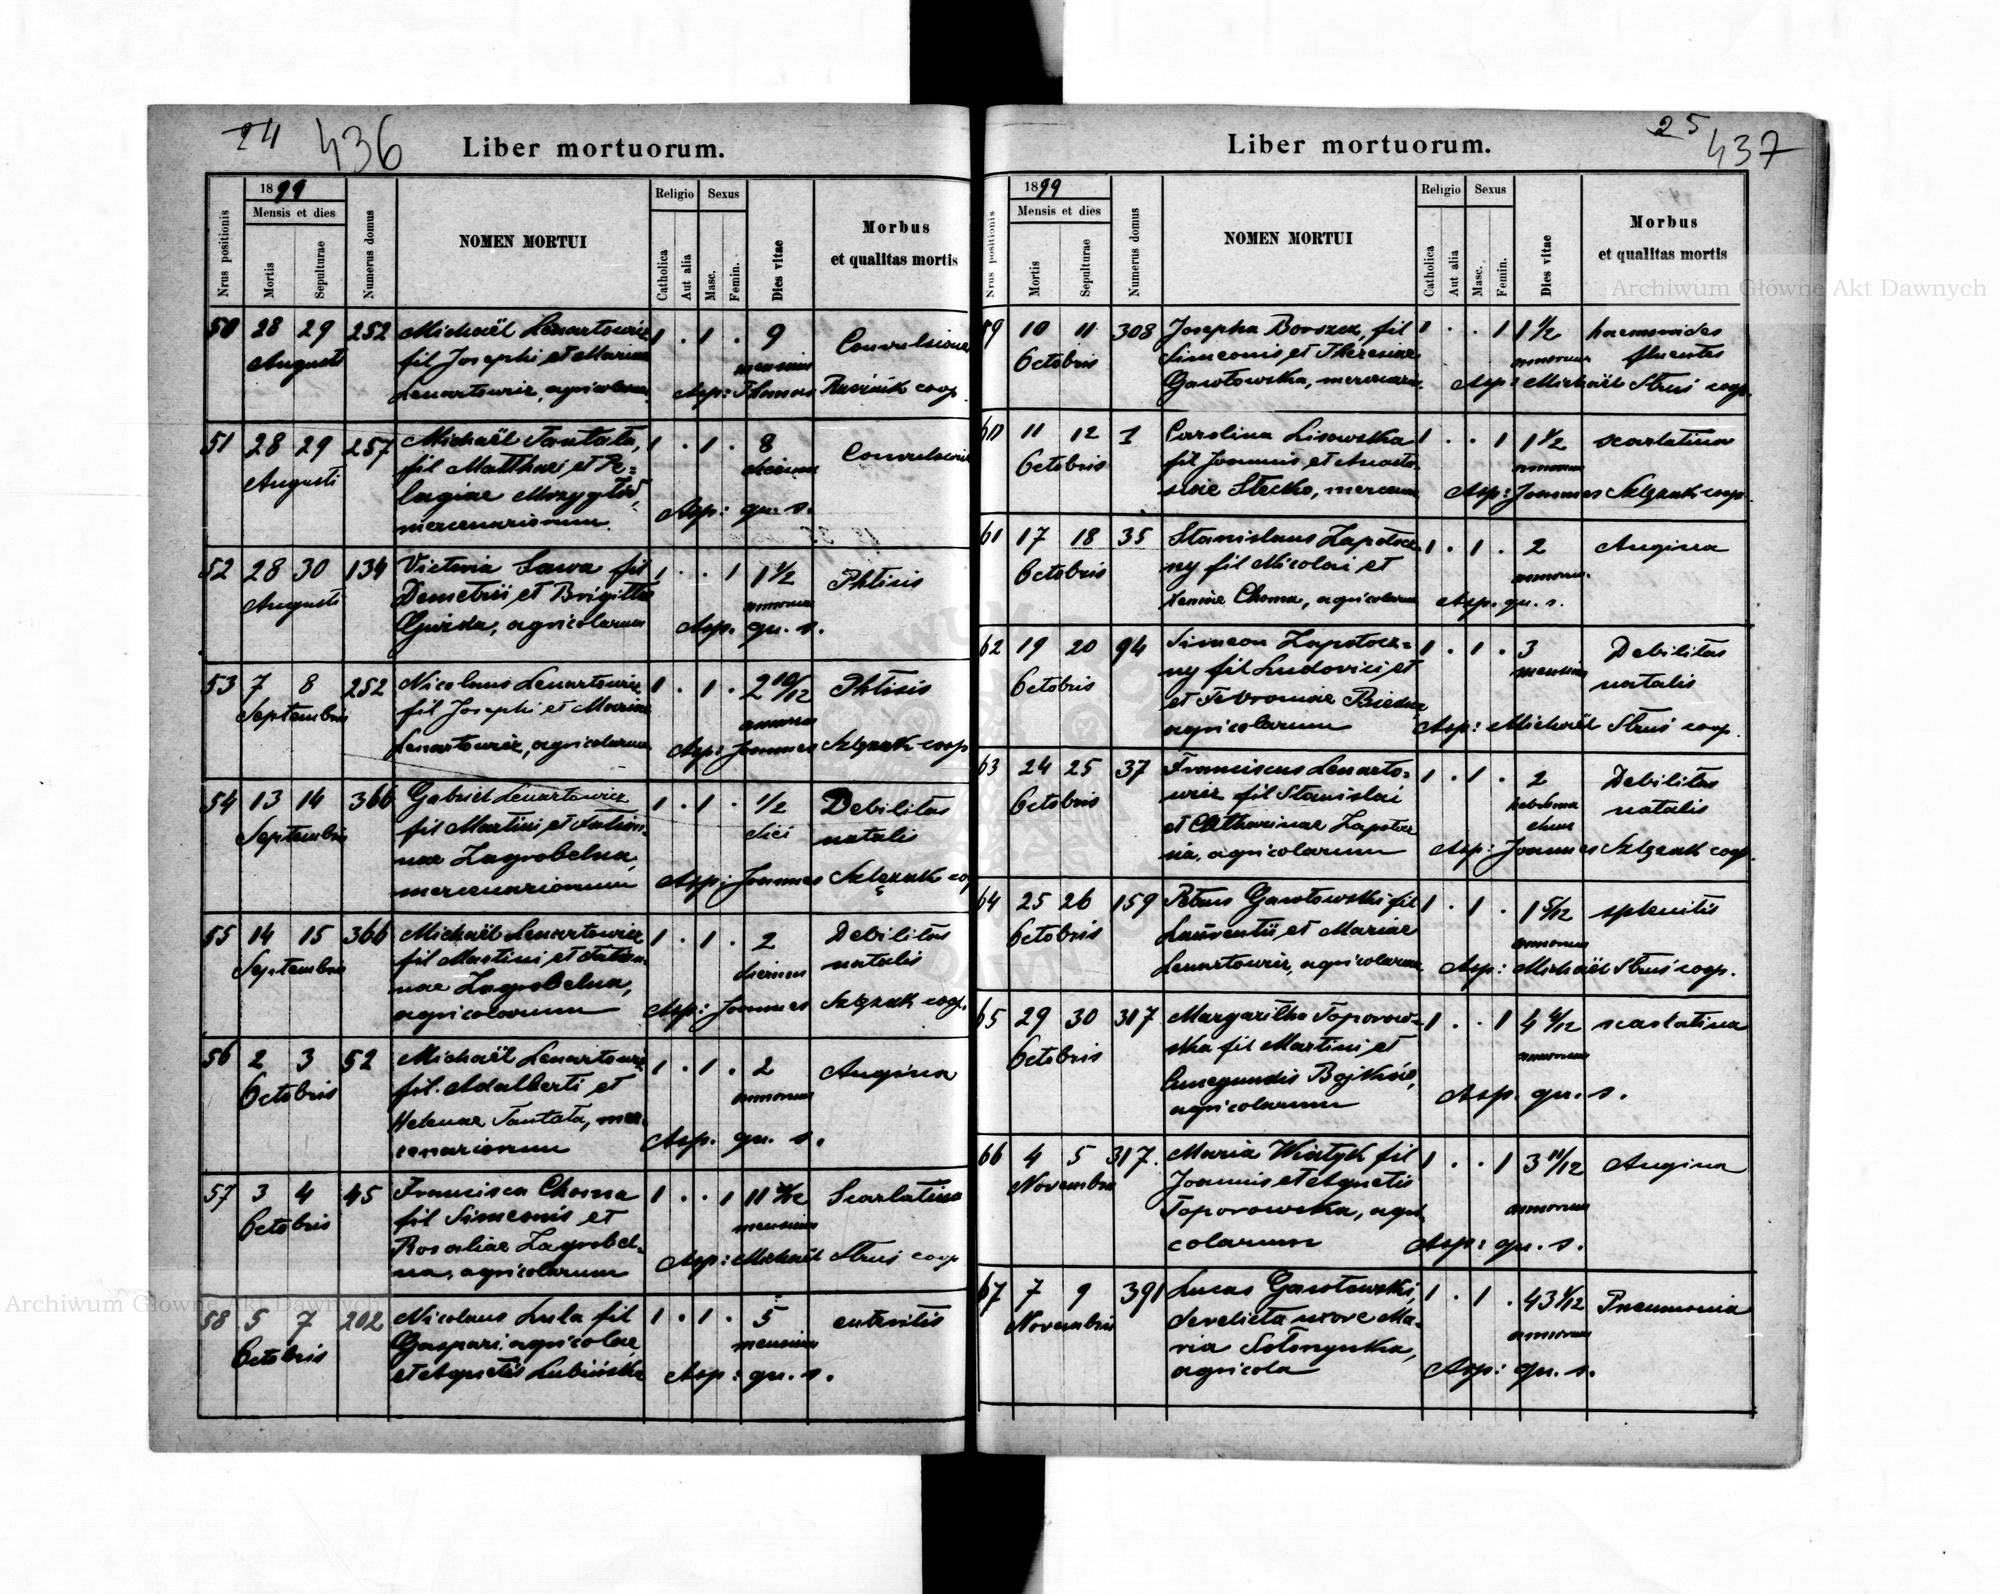 24 436
Liber mortuorum.
Nrus positionis
1899
Mensis et dies
Mortis
Sepulturae
Numerus domus
NOMEN MORTUI
Religio
Catholica
Aut alia
Sexus
Masc.
Femin.
Dies vitae
Morbus
et qualitas mortis
50 28 29 252 Michaël Lenartowicz 1 . 1 . 9 Convulsiones
Augusti fil Josephi et Mariae mensium
Lenartowicz, agricolarum Asp: Thomas coop
51 28 29 257 Michaël Tantala, 1 . 1 . 8 Convulsiones
Augusti fil Matthaei et Pe= dierum
lagiae Mozygłód,
mercenariorum. Asp: qu. s.
52 28 30 134 Victoria Sawa fil 1 . . 1 1 1/2 Phtisis
Augusti Demetrii et Brigittae annorum
agricolarum Asp. qu. s.
53 7 8 252 Nicolaus Lenartowicz 1 . 1 . 2 10/12 Phtisis
Septembris fil Josephi et Mariae annorum
Lenartowicz, agricolarum Asp: Joannes Szlęzak coop
54 13 14 366 Gabriel Lenartowicz 1 . 1 . 1/2 Debilitas
Septembris fil Martini et diei natalis
nae Zagrobelna,
mercenariorum Asp: Joannes Szlęzak
55 14 15 366 Michaël Lenartowicz 1 . 1 . 2 Debilitas
Septembris fil Martini et dierum natalis
nae Zagrobelna,
agricolarum Asp: Joannes Szlęzak coop.
56 2 3 52 Michaël Lenartowicz 1 . 1 . 2 Angina
Octobris fil. Adalberti et annorum
Helenae Tantala, mer
cenariorum Asp. qu. s.
57 3 4 45 Francisca Choma 1 . . 1 11 Scarlatina
Octobris fil Simeonis et mensium
Rosaliae Zagrobel=
na, agricolarum Asp: Michaël Struś coop
58 5 7 202 Nicolaus Lula fil 1 . 1 . 5 enteritis
Octobris Gaspari, agricolae mensium
et Agnetis Lubińska Asp: qu. s.
25 437
Liber mortuorum.
Nrus positionis
1899
Mensis et dies
Mortis
Sepulturae
Numerus domus
NOMEN MORTUI
Religio
Catholica
Aut alia
Sexus
Masc.
Femin.
Dies vitae
Morbus
et qualitas mortis
59 10 11 308 Josepha fil 1 . . 1 1 1/2 haemoroides
Octobris Simeonis et Theresiae annorum fluentes
Gawłowska, Asp: Michaël Struś coop.
60 11 12 1 Carolina Lisowska 1 . . 1 1 1/2 scarlatina
Octobris fil Joannis et Anasta annorum
siae Stecko, Asp: Joannes Szlęzak coop.
61 17 18 35 Stanislaus Zapotocz 1 . 1 . 2 Angina
Octobris ny fil Nicolai et annorum.
Xeniae Choma, agricolarum Asp. qu. s.
62 19 20 94 Simeon Zapotocz= 1 . 1 . 3 Debilitas
Octobris ny fil Ludovici et mensium natalis
et Fevroniae Biedna
agricolarum Asp: Michaël Struś coop.
63 24 25 37 Franciscus Lenarto= 1 . 1 . 2 Debilitas
Octobris wicz fil Stanislai hebdoma natalis
et Catharinae Zapotocz dum
na, agricolarum Asp: Joannes Szlęzak coop.
64 25 26 159 Petrus Gawłowski fil 1 . 1 . 1 5/12 splenitis
Octobris Laurentii et Mariae annorum
Lenartowicz, agricolarum Asp: Michaël Struś coop.
65 29 30 317 Margaritha Toporow= 1 . . 1 4 scarlatina
Octobris ska fil Martini et annorum
Cunegundis Bojków,
agricolarum Asp. qu. s.
66 4 5 317. Maria Wiatyk fil 1 . . 1 3 11/12 Angina
Novembris Joannis et Agnetis annorum
Toporowska, agri
colarum Asp: qu. s.
67 7 9 391 Lucas Gawłowski, 1 . 1 . 43 1/12 Pneumonia
Novembris derelicta uxore Ma= annorum
ria Sołonynka,
agricola Asp: qu. s.
Archiwum Główne Akt Dawnych
Archiwum Główne Akt Dawnych